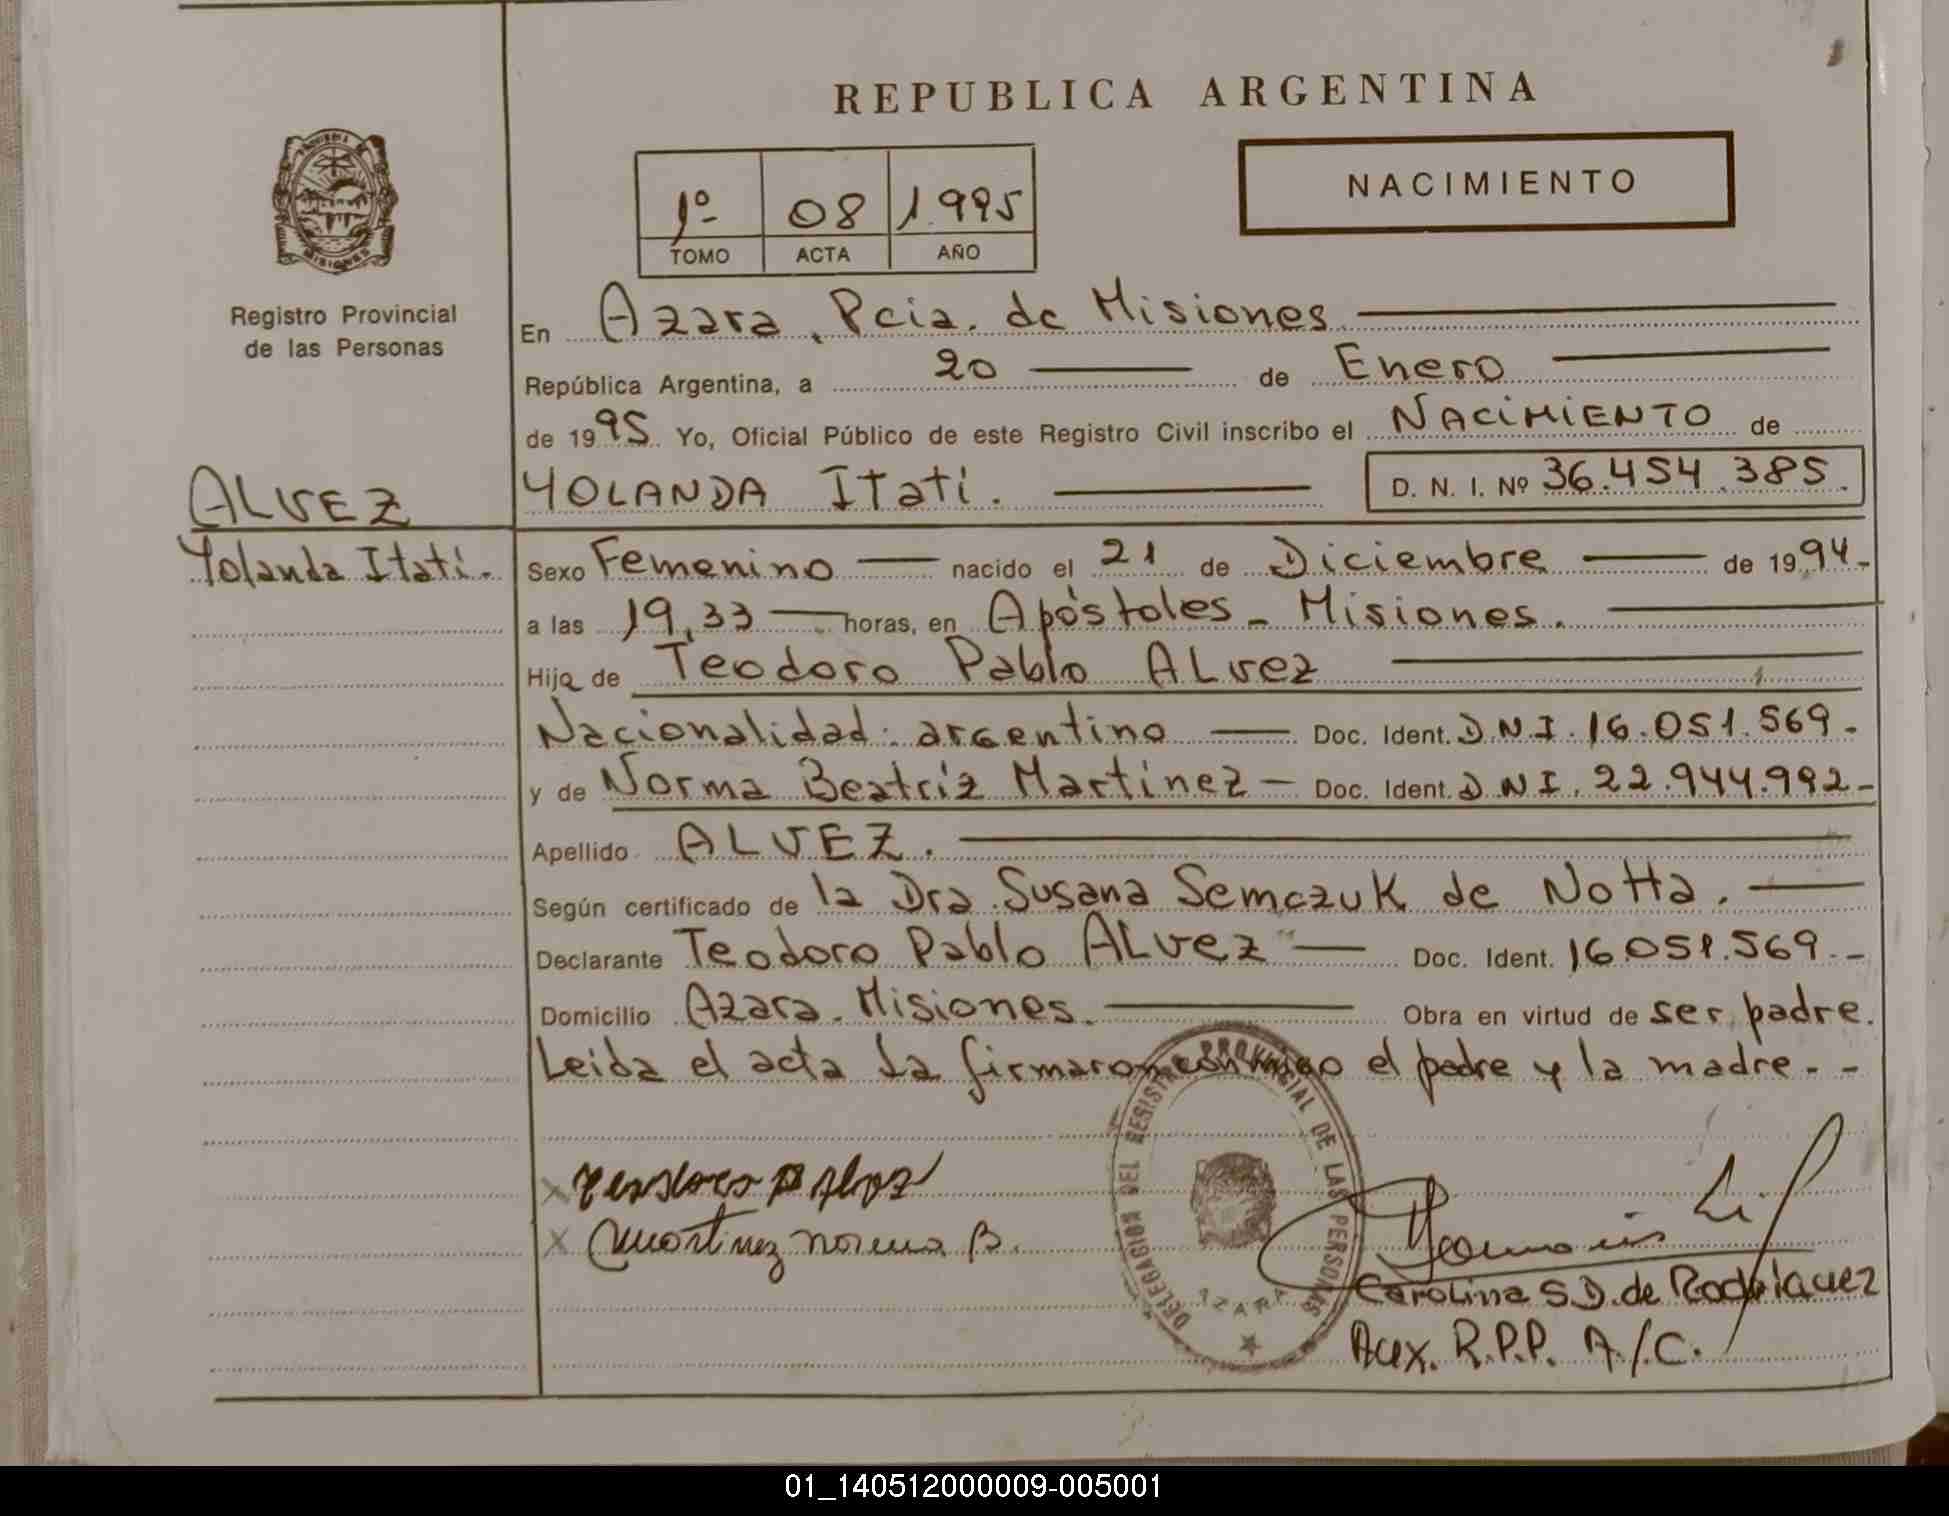 REPUBLICA ARGENTINA
NACIMIENTO
1º 08 1.995
TOMO ACTA AÑO
Registro Provincial
de las Personas
En Azara, Pcia. de Misiones
República Argentina, a 20 de Enero
de 1995 Yo, Oficial Público de este Registro Civil inscribo el NACIMIENTO de
YOLANDA Itatí. D. N. I. Nº 36.454.385.
ALVEZ
Yolanda Itatí.
Sexo Femenino nacido el 21 de Diciembre de 1994-
a las 19,33 horas, en Apóstoles - Misiones.
Hija de Teodoro Pablo ALvez
Nacionalidad: argentino Doc. Ident. D.N.I. 16.051.569.
y de Norma Beatríz Martínez - Doc. Ident. D.N.I. 22.944.992-
Apellido ALVEZ.
Según certificado de la Dra. Susana Semczuk de Notta.
Declarante Teodoro Pablo ALvez Doc. Ident. 16.051.569.-
Domicilio Azara. Misiones. Obra en virtud de ser padre.
Leida el acta La firmaron conmigo el padre y la madre.--
DELEGACION DEL REGISTRO PROVINCIAL DE LAS PERSONAS
AZARA
x Martinez Norma B.
Carolina S.D. de Rodriguez
Aux. R.P.P. A/C.
MISIONES
01_140512000009-005001